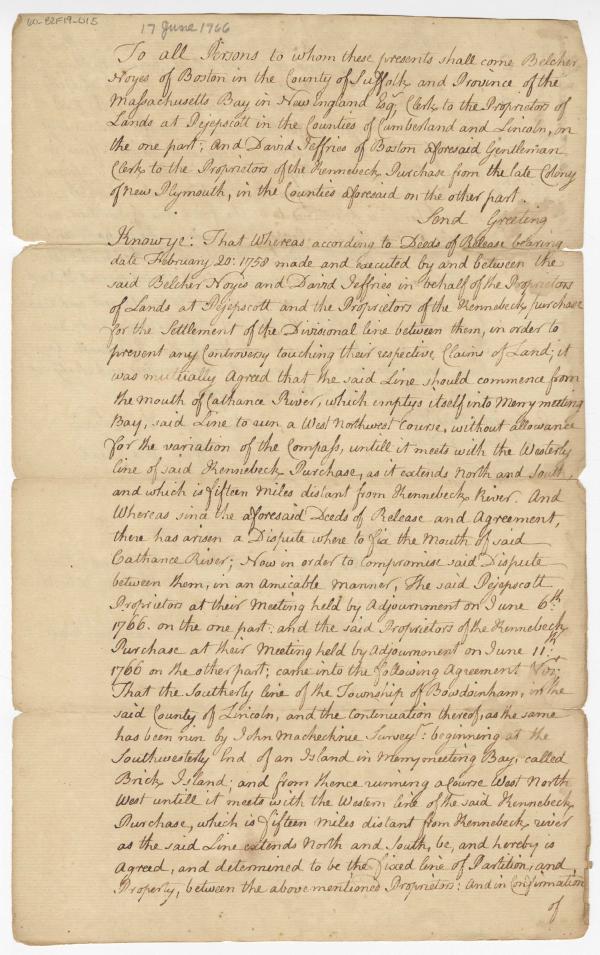 17 June 1766
To all Persons to whom these presents shall come Belcher
Noyes of Boston in the County of Suffolk and Province of the
Massachusetts Bay in New England Esqr. Clerk to the Proprietors of
Lands at Pejepscott in the Counties of Cumberland and Lincoln, on
the one part; And David Jeffries of Boston aforesaid Gentleman
Clerk to the Proprietors of the Kennebeck Purchase from the late Colony
of New Plymouth, in the Counties aforesaid on the other part.
Send Greeting
Know ye: That Whereas according to Deeds of Release bearing
date February 20: 1758 made and executed by and between the
said Belcher Noyes and David Jeffries in behalf of the Proprietors
of Lands at Pejepscott and the Proprietors of the Kennebeck purchase
for the Settlement of the Divisional line between them, in order to
prevent any Controversy touching their respective Claims of Land; it
was mutually Agreed that the said Line should commence from
the mouth of Cathance River, which emptys itself into Merry meeting
Bay, said Line to run a West Northwest Course, without allowance
for the variation of the Compass, untill it meets with the Westerly
line of said Kennebeck Purchase, as it extends North and South,
and which is fifteen Miles distant from Kennebeck River. And
Whereas since the aforesaid Deeds of Release and Agreement,
there has arisen a Dispute where to fix the Mouth of said
Cathance River; Now in order to Compromise said Dispute
between them, in an Amicable manner, The said Pejepscott
Proprietors at their Meeting held by Adjournment on June 6th.
1766. on the one part: and the said Proprietors of the Kennebeck
Purchase at their Meeting held by Adjournment on June 11th.
1766 on the other part; came into the following Agreement Vizt.
That the Southerly line of the Township of Bowdoinham, in the
said County of Lincoln, and the Continuation thereof, as the same
has been run by John Mackechnie Surveyr: beginning at the
Southwesterly End of an Island in Merrymeeting Bay, called
Brick Island; and from thence running a Course West North
West untill it meets with the Western line of the said Kennebeck
Purchase, which is fifteen Miles distant from Kennebeck river
as the said Line extends North and South, be, and hereby is
Agreed, and determined to be the fixed line of Partition, and
Property, between the above mentioned Proprietors: And in Confirmation
of